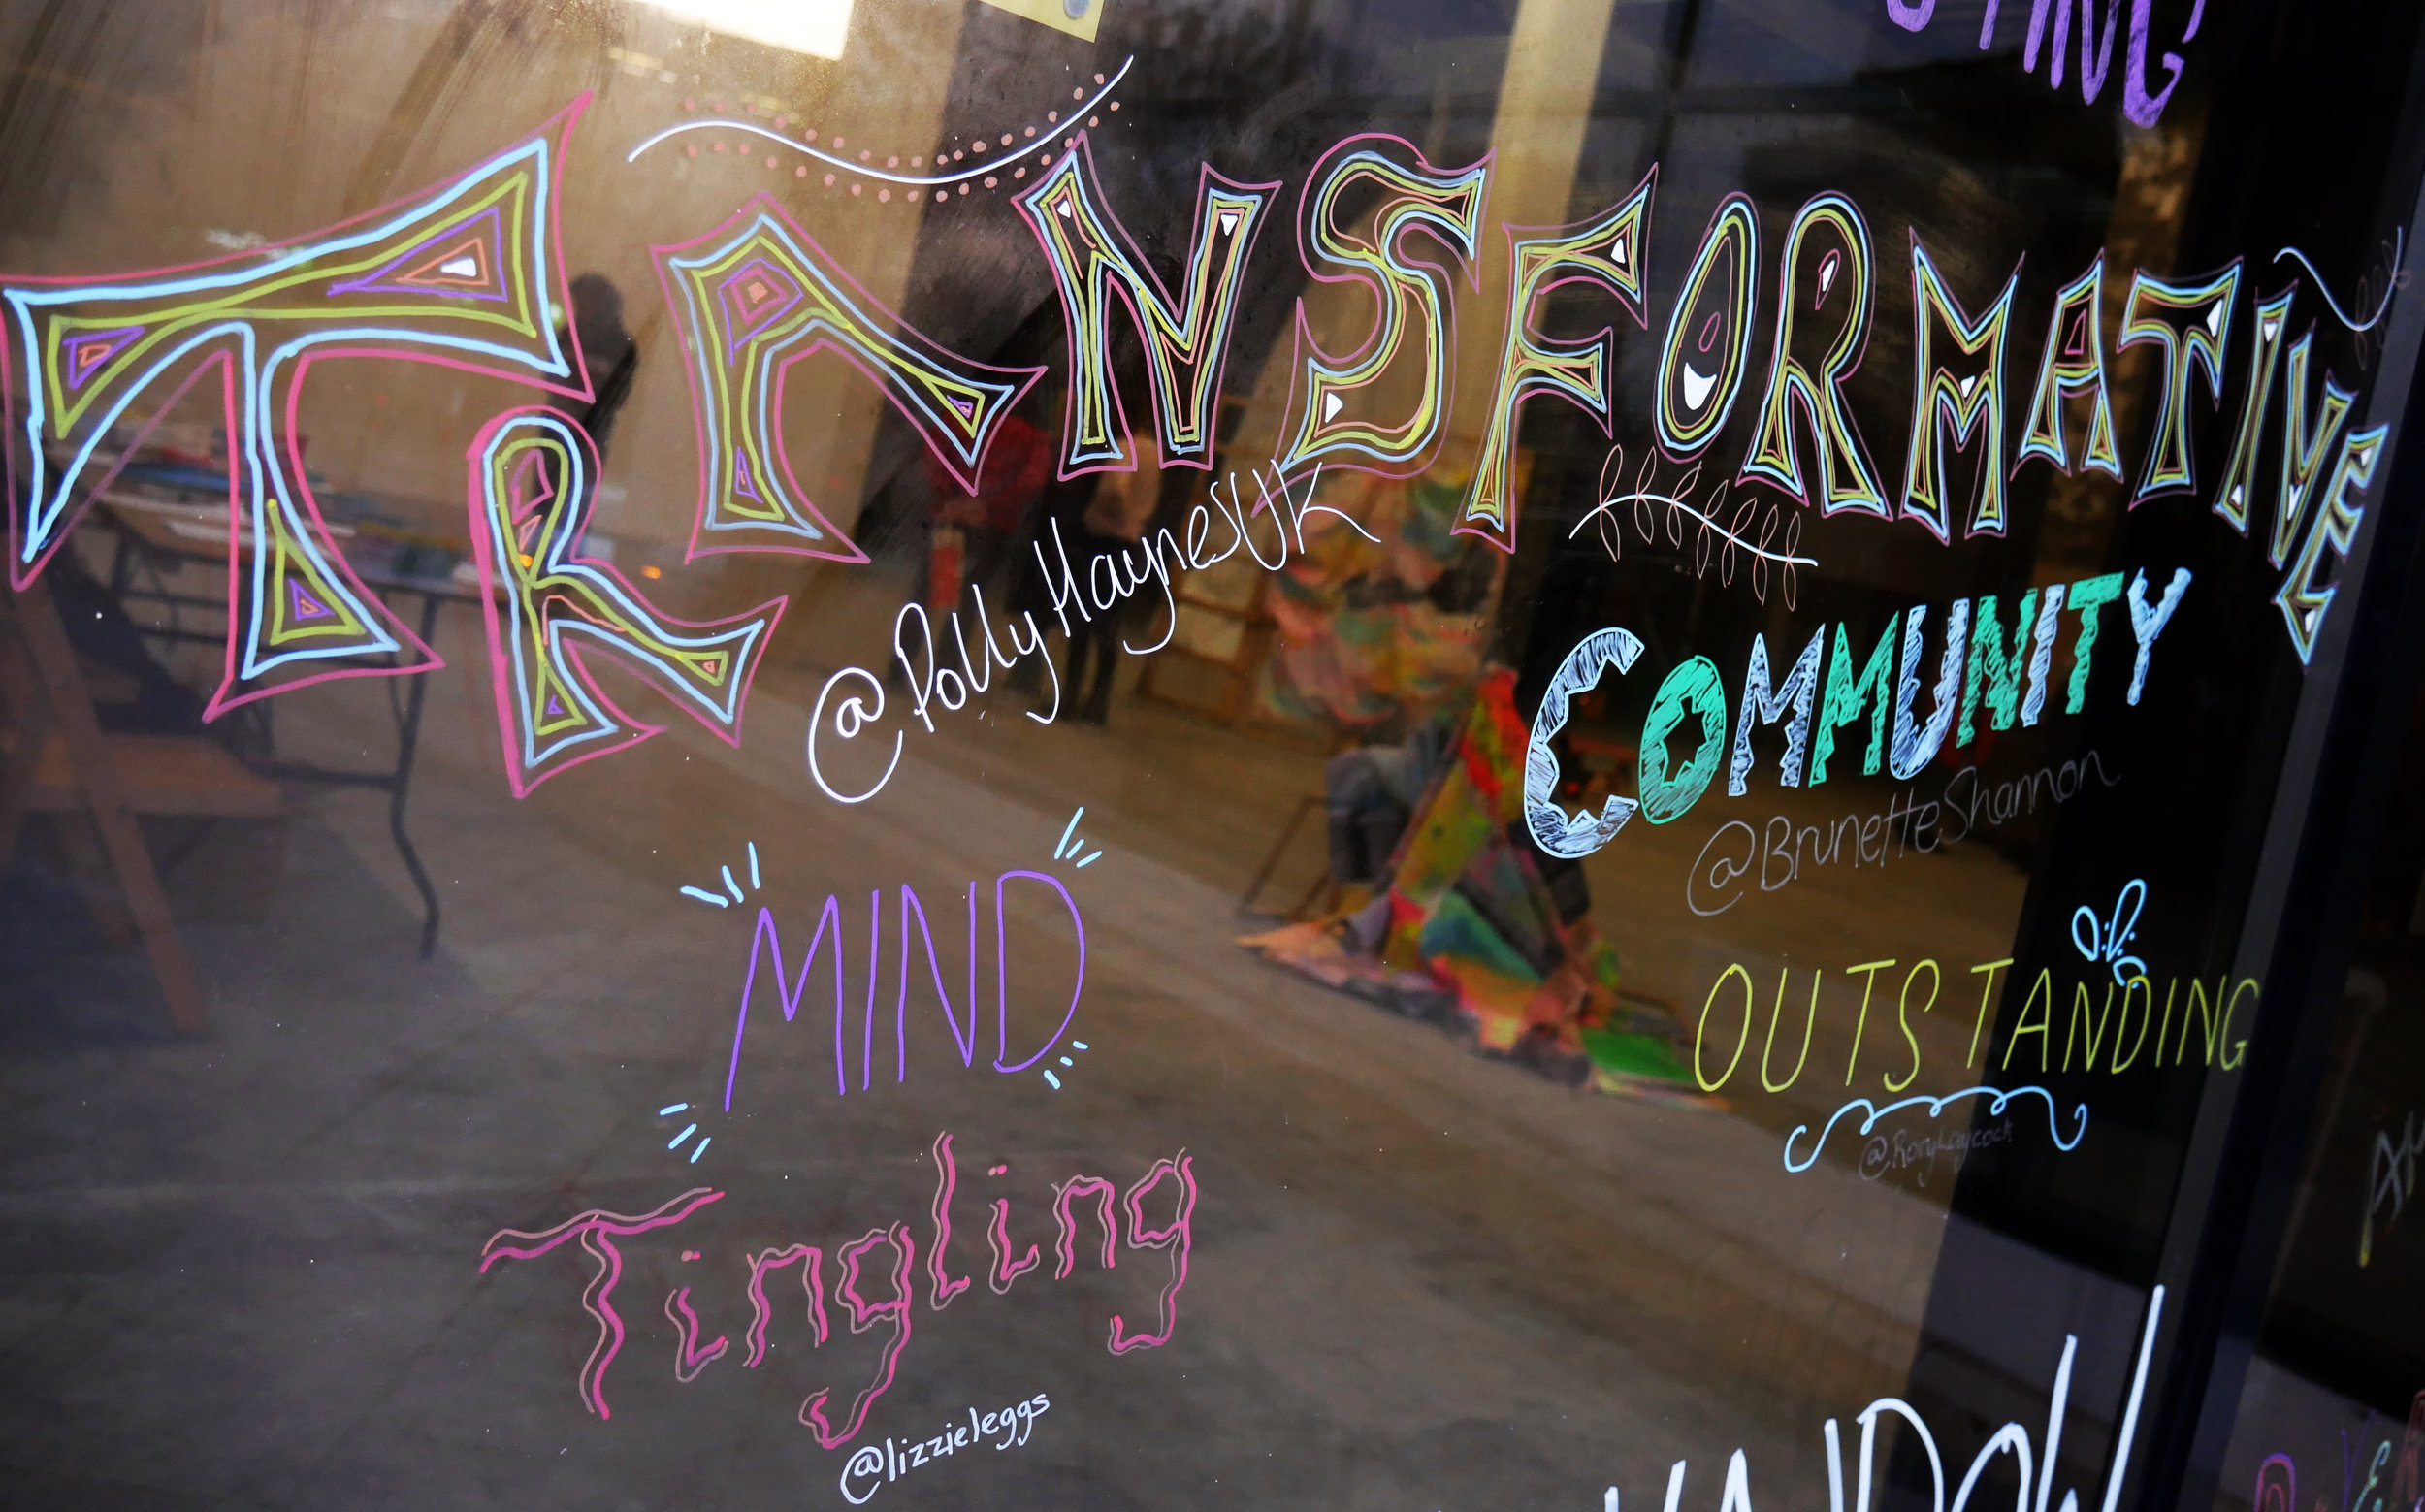 TRANSFORMATIVE
@PollyHaynesUK
COMMUNITY
@BrunetteShannon
MIND
Tingling
@lizzieleggs
OUTSTANDING
@RoryLaycock